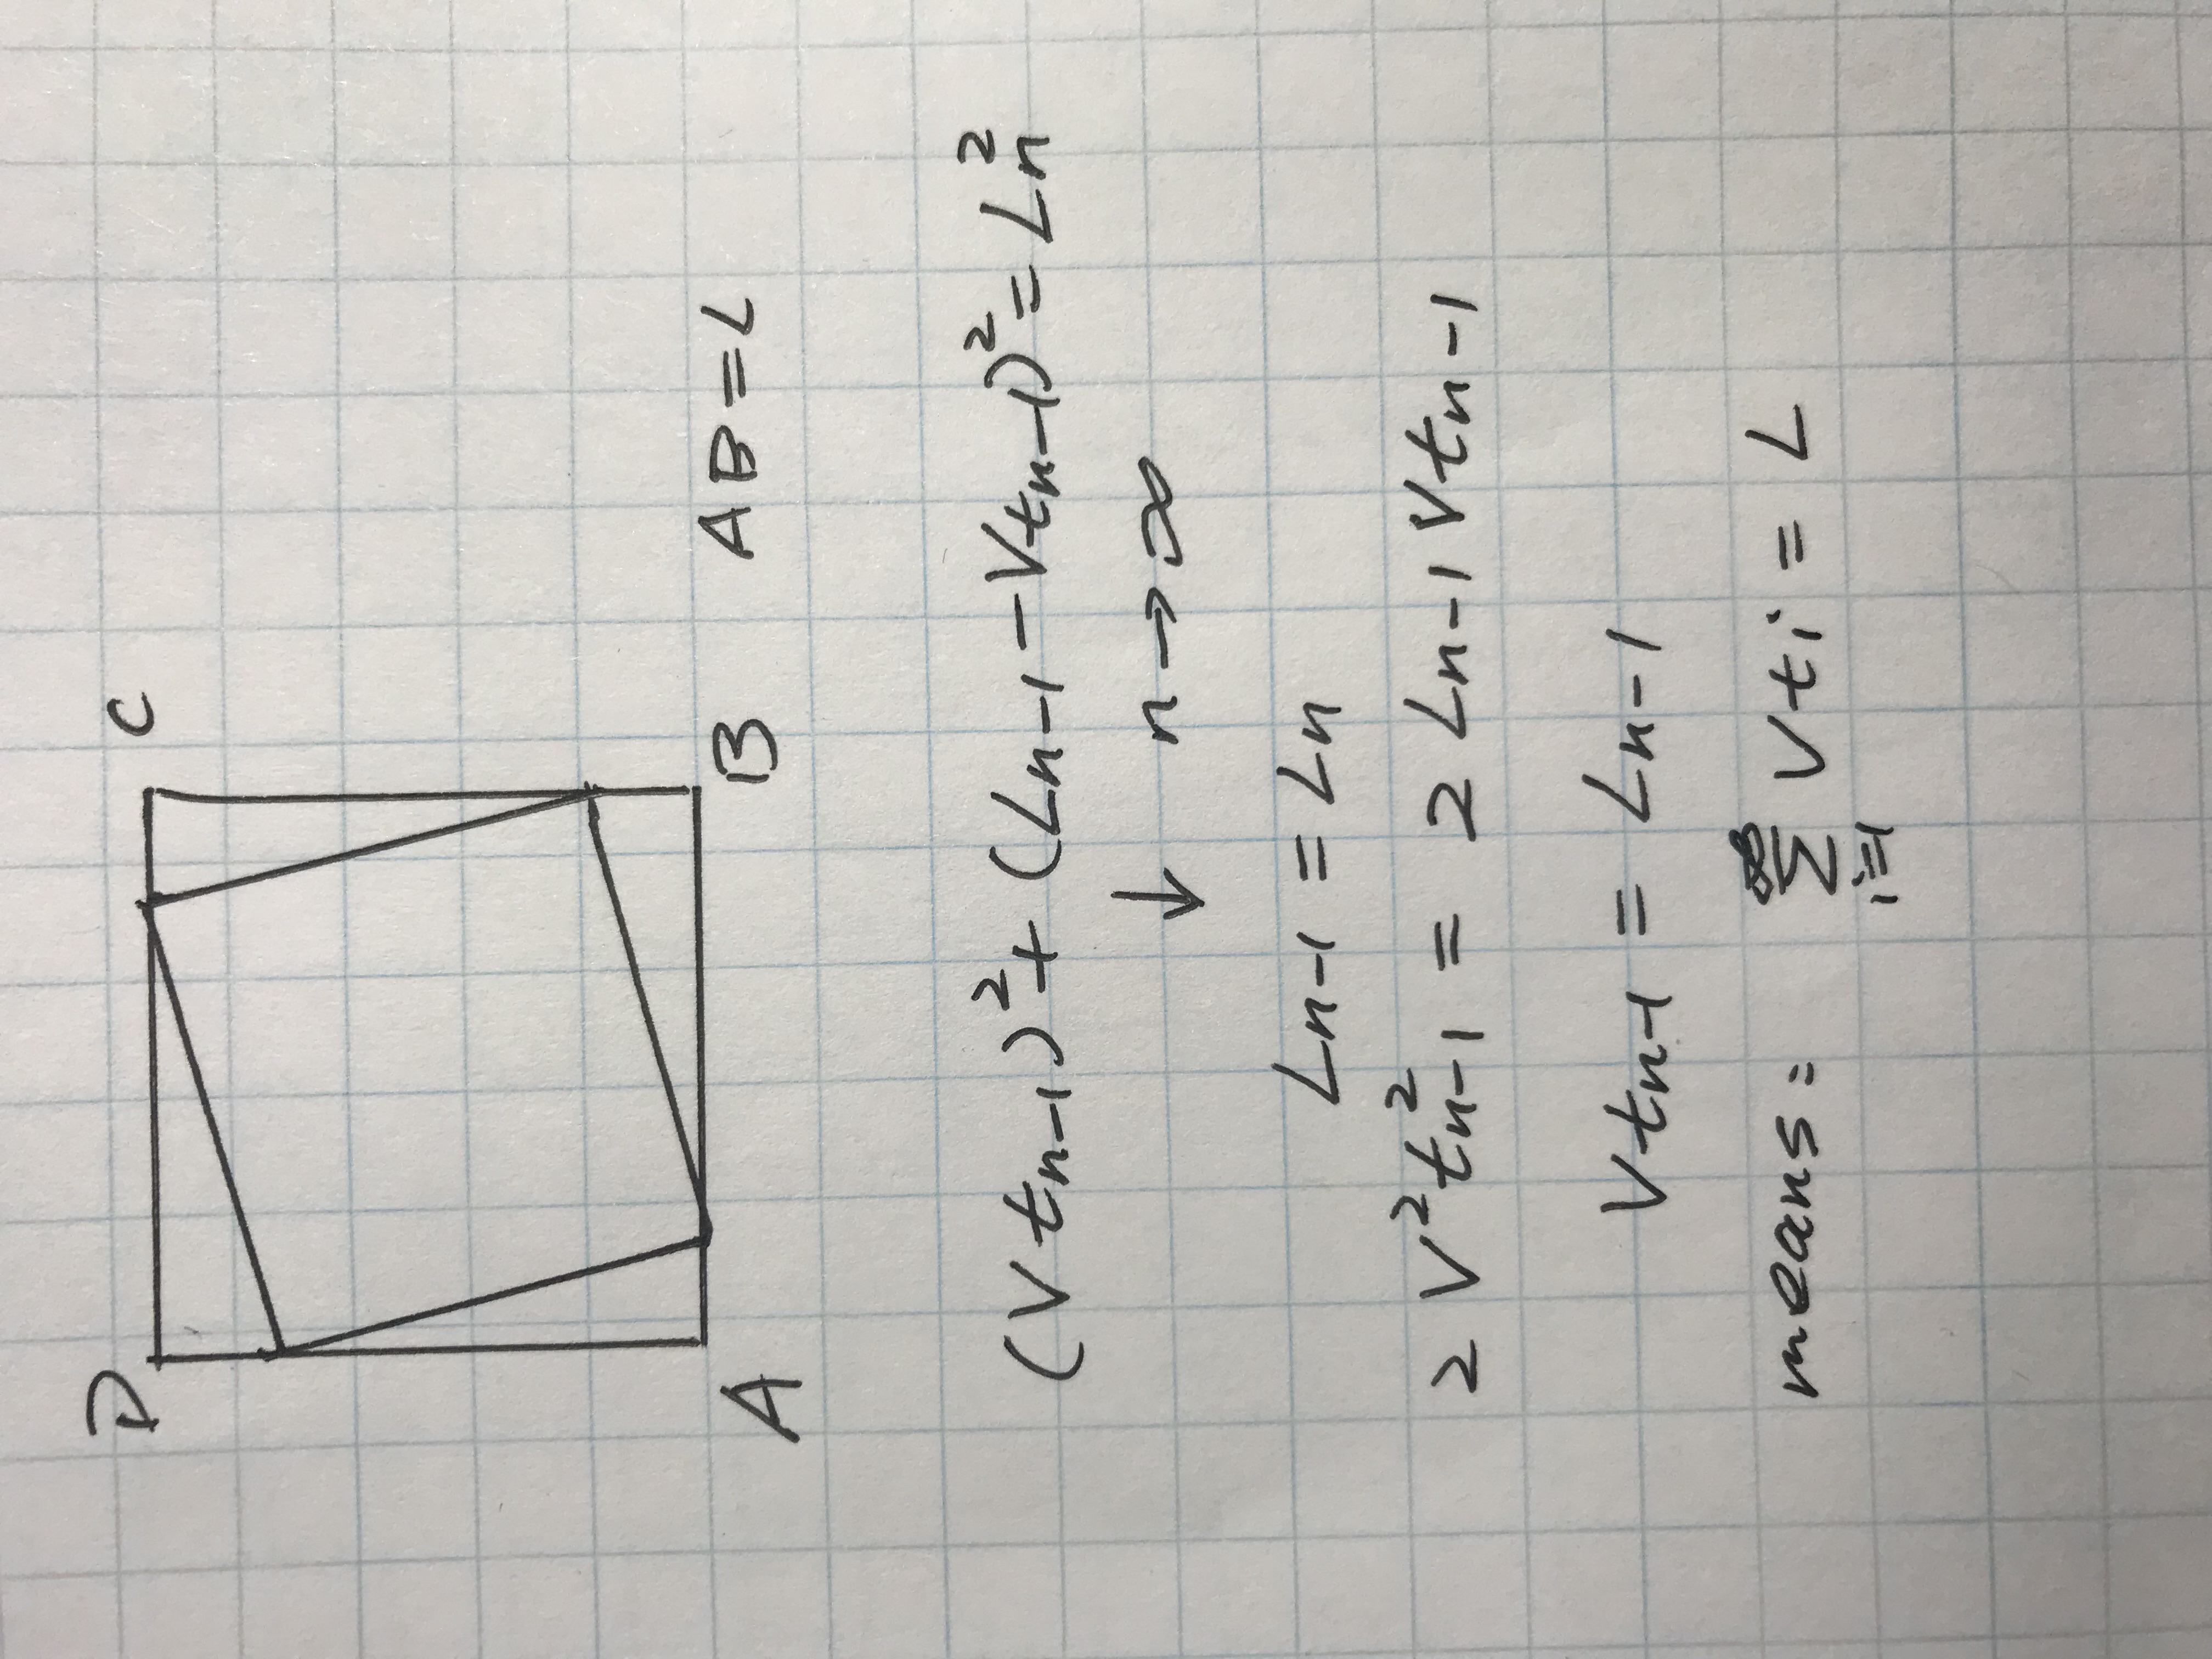 D C
A B AB=L
(Vtₙ₋₁)²+(Lₙ₋₁-Vtₙ₋₁)²=Lₙ²
↓ n→∞
Lₙ₋₁=Lₙ
2V²tₙ₋₁²=2Lₙ₋₁Vtₙ₋₁
Vtₙ₋₁=Lₙ₋₁
means: ∞
Σ Vti=L
i=1